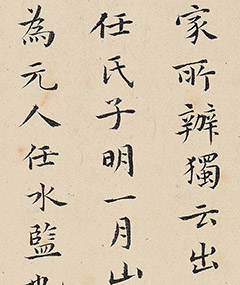 家所辦獨云出
任氏子明一月山
為元人任水監也